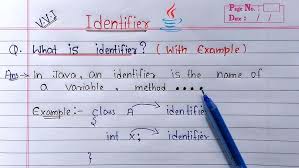 V.V.I
Identifier
Java
Page No. :
Date : / /
Q. What is identifier? (With Example)
Ans → In Java, an identifier is the name of
a variable, method ....
Example:- class A → identifier
int x; → identifier
}